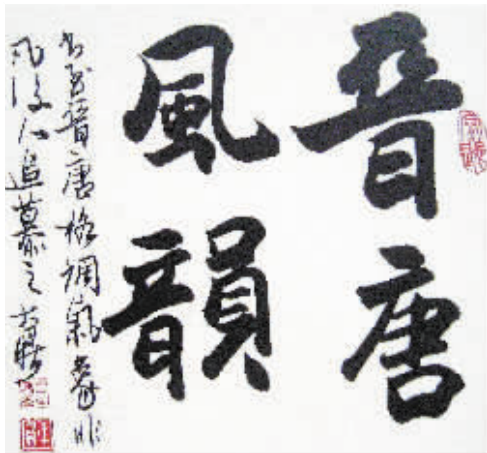 晉唐
風韻
书至晉唐格調氣韵非
凡後人追慕之